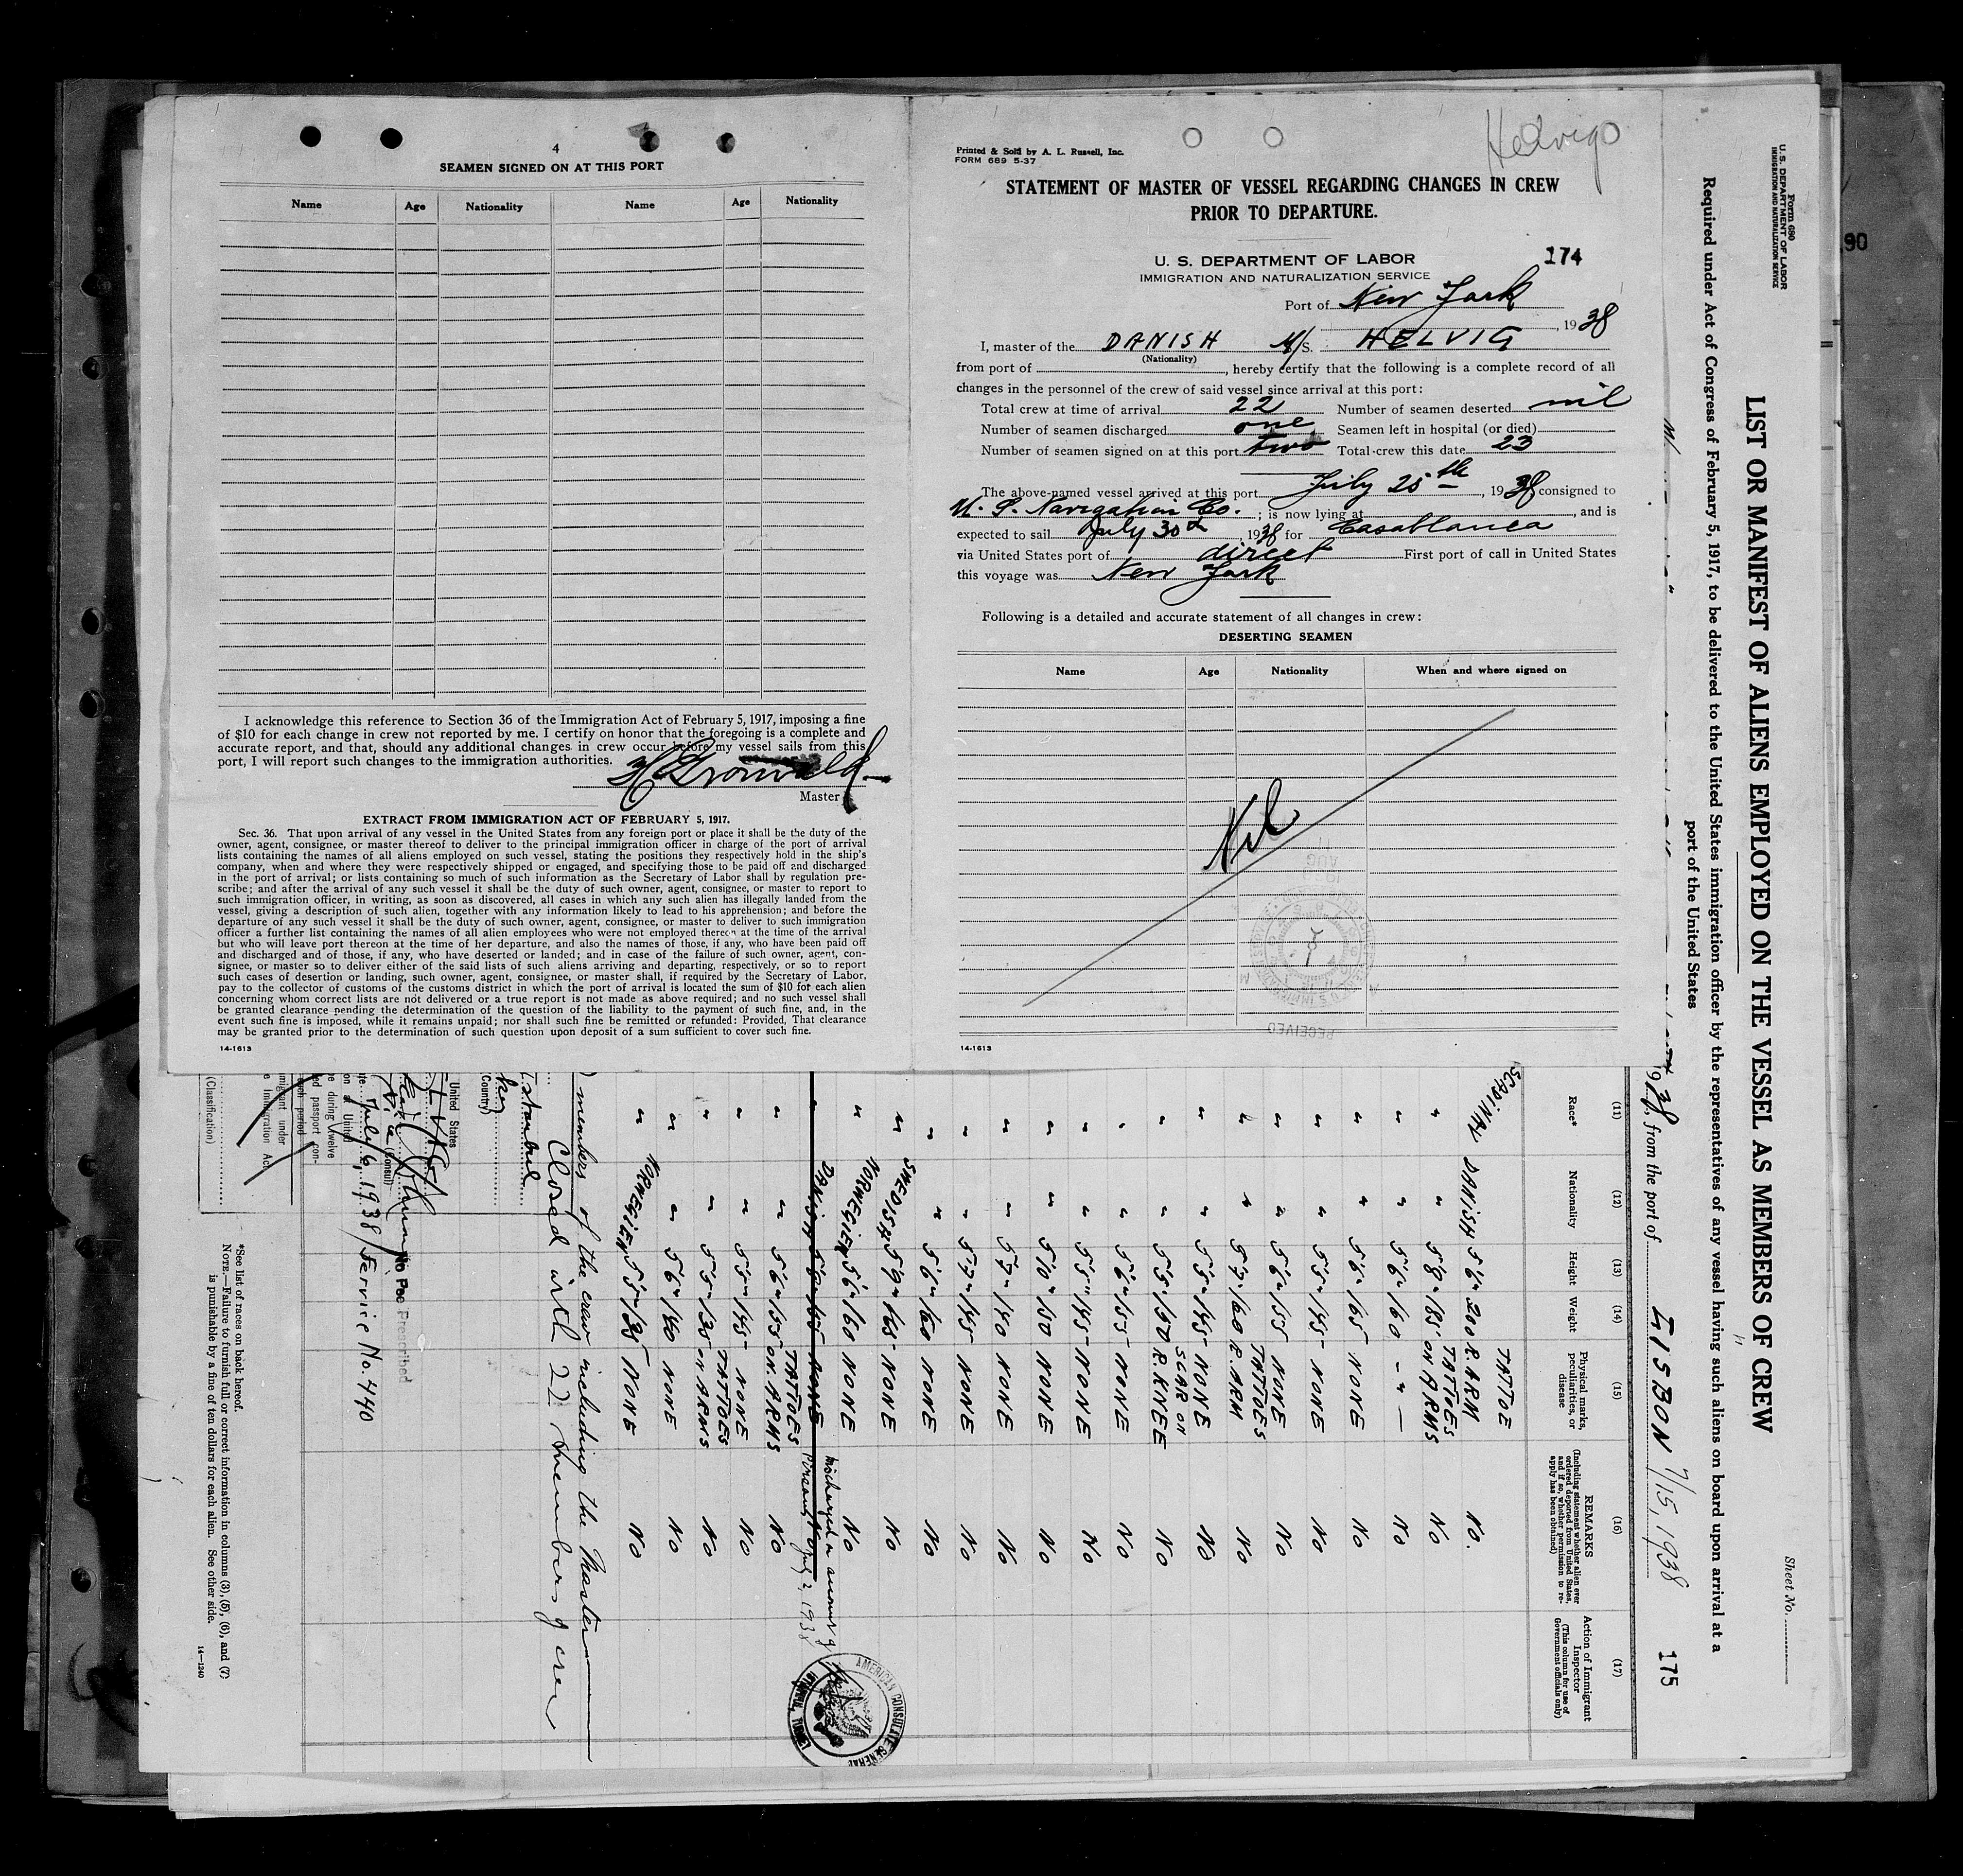 4
SEAMEN SIGNED ON AT THIS PORT
Name Age Nationality Name Age Nationality
I acknowledge this reference to Section 36 of the Immigration Act of February 5, 1917, imposing a fine
of $10 for each change in crew not reported by me. I certify on honor that the foregoing is a complete and
accurate report, and that, should any additional changes in crew occur before my vessel sails from this
port, I will report such changes to the immigration authorities.
Master
EXTRACT FROM IMMIGRATION ACT OF FEBRUARY 5, 1917.
Sec. 36. That upon arrival of any vessel in the United States from any foreign port or place it shall be the duty of the
owner, agent, consignee, or master thereof to deliver to the principal immigration officer in charge of the port of arrival
lists containing the names of all aliens employed on such vessel, stating the positions they respectively hold in the ship's
company, when and where they were respectively shipped or engaged, and specifying those to be paid off and discharged
in the port of arrival; or lists containing so much of such information as the Secretary of Labor shall by regulation pre-
scribe; and after the arrival of any such vessel it shall be the duty of such owner, agent, consignee, or master to report to
such immigration officer, in writing, as soon as discovered, all cases in which any such alien has illegally landed from the
vessel, giving a description of such alien, together with any information likely to lead to his apprehension; and before the
departure of any such vessel it shall be the duty of such owner, agent, consignee, or master to deliver to such immigration
officer a further list containing the names of all alien employees who were not employed thereon at the time of the arrival
but who will leave port thereon at the time of her departure, and also the names of those, if any, who have been paid off
and discharged and of those, if any, who have deserted or landed; and in case of the failure of such owner, agent, con-
signee, or master so to deliver either of the said lists of such aliens arriving and departing, respectively, or so to report
such cases of desertion or landing, such owner, agent, consignee, or master shall, if required by the Secretary of Labor,
pay to the collector of customs of the customs district in which the port of arrival is located the sum of $10 for each alien
concerning whom correct lists are not delivered or a true report is not made as above required; and no such vessel shall
be granted clearance pending the determination of the question of the liability to the payment of such fine, and, in the
event such fine is imposed, while it remains unpaid; nor shall such fine be remitted or refunded: Provided, That clearance
may be granted prior to the determination of such question upon deposit of a sum sufficient to cover such fine.
14-1613
Printed & Sold by A. L. Russell, Inc.
FORM 689 5-37
STATEMENT OF MASTER OF VESSEL REGARDING CHANGES IN CREW
PRIOR TO DEPARTURE.
U. S. DEPARTMENT OF LABOR 174
IMMIGRATION AND NATURALIZATION SERVICE
Port of New York
, 1938
I, master of the DANISH M/S. HELVIG
(Nationality)
from port of , hereby certify that the following is a complete record of all
changes in the personnel of the crew of said vessel since arrival at this port:
Total crew at time of arrival 22 Number of seamen deserted nil
Number of seamen discharged one Seamen left in hospital (or died)
Number of seamen signed on at this port two Total crew this date 23
The above-named vessel arrived at this port July 25th, 1938 consigned to
U. S. Navigation Co. ; is now lying at , and is
expected to sail July 30th 1938 for Casablanca
via United States port of direct First port of call in United States
this voyage was New York
Following is a detailed and accurate statement of all changes in crew:
DESERTING SEAMEN
Name Age Nationality When and where signed on
Nil
RECEIVED
14-1613
Form 680
U. S. DEPARTMENT OF LABOR
IMMIGRATION AND NATURALIZATION SERVICE
Sheet No.
LIST OR MANIFEST OF ALIENS EMPLOYED ON THE VESSEL AS MEMBERS OF CREW
Required under Act of Congress of February 5, 1917, to be delivered to the United States immigration officer by the representatives of any vessel having such aliens on board upon arrival at a
port of the United States
1938, from the port of LISBON 7/15, 1938 175
(11) (12) (13) (14) (15) (16) (17)
Race* Nationality Height Weight Physical marks, peculiarities, or disease REMARKS (Including statement whether alien ever ordered deported from United States, and if so, whether permission to reapply has been obtained) Action of Immigrant Inspector (This column for use of Government officials only)
TATTOE
DANISH 5'6" 200 R. ARM NO.
TATTOES
" " 5'8" 185 ON ARMS NO
" " 5'6" 160 - " - NO
" " 5'6" 165 NONE NO
" " 5'5" 145 NONE NO
" " 5'6" 155 NONE NO
TATTOES
" " 5'7" 160 R. ARM NO
" " 5'5" 145 NONE NO
SCAR ON
" " 5'5" 150 R. KNEE NO
" " 5'6" 155 NONE NO
" " 5'5" 145 NONE NO
" " 5'10" 150 NONE NO
" " 5'7" 140 NONE NO
" " 5'7" 145 NONE NO
" " 5'6" 160 NONE NO
" SWEDISH 5'9" 165 NONE NO
" NORWEGIEN 5'6" 160 NONE NO
Discharged
July 2, 1938
TATTOES
" " 5'6" 155 ON ARMS NO
" " 5'5" 145 NONE NO
TATTOES
" " 5'5" 135 ON ARMS NO
" " 5'6" 140 NONE NO
" NORWEGIEN 5'5" 135 NONE NO
members of the crew including the Master
Closed with 22 members of crew
AMERICAN CONSULATE GENERAL
ISTANBUL, TURKEY
Istanbul
(Country)
United States
Vice (Consul)
No Fee Prescribed
July 6, 1938 / Service No. 440
(Classification)
*See list of races on back hereof.
NOTE.—Failure to furnish full or correct information in columns (3), (5), (6), and (7)
is punishable by a fine of ten dollars for each alien. See other side.
14—1240
90